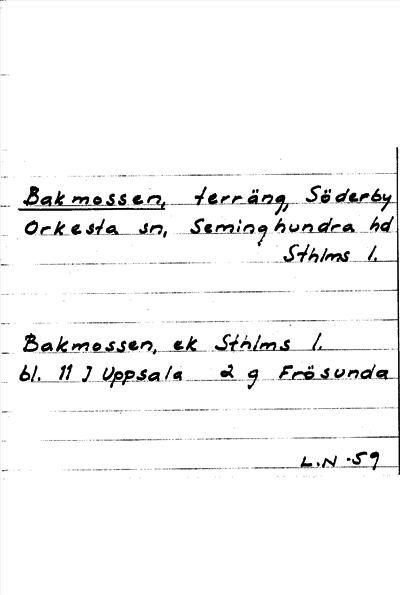 Bakmossen, terräng, Söderby
Orkesta sn, Seminghundra hd
Sthlms l.
Bakmossen, ek Sthlms l.
bl. 11 J Uppsala 2 g Frösunda
L.N -59